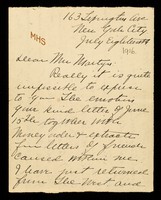 163 Lexington Ave
New York City
July Eighteenth
1916
MHS
Dear Mrs Martyn
Really it is quite
impossible to express
to you the emotion
your kind letter of June
15th together with
money order & explicit
fine letters of friends
caused within me
I have just returned
from the West and